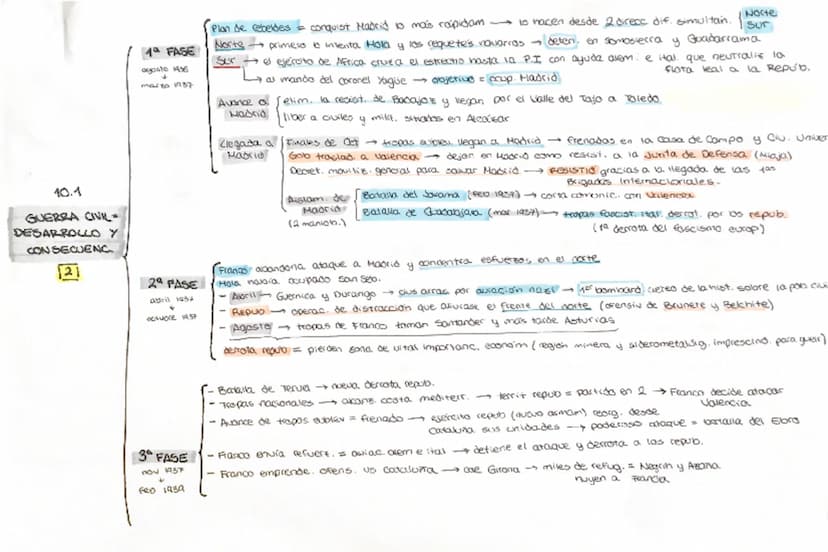 10.1
GUERRA CIVIL =
DESARROLLO Y
CONSECUENC.
2
1ª FASE
agosto 1936
↓
marzo 1937
Plan de rebeldes = conquist Madrid lo más rápidam → lo hacen desde 2 direcc dif. simultán. { Norte
Sur
Norte → primero lo intenta Mola y los requetés navarros → deten. en Somosierra y Guadarrama
Sur → el ejército de África cruza el estrecho hasta la P.I con ayuda alem. e ital. que neutraliz la
flota leal a la Repub.
↳ al mando del coronel Yagüe → objetivo = ocup. Madrid
Avance a
Madrid
elim. la resist. de Badajoz y llegan por el Valle del Tajo a Toledo.
libera civiles y milit. sitiados en Alcázar
Llegada a
Madrid
Finales de Oct → tropas sublev llegan a Madrid → frenadas en la Casa de Campo y Ciu. Univer
Gob traslad. a Valencia → dejan en Madrid como resist. a la Junta de Defensa (Miaja)
Decret. moviliz. general para salvar Madrid → RESISTIÓ gracias a la llegada de las 1as
Brigadas Internacionales.
Aislam. de
Madrid
(2 maniob.)
Batalla del Jarama (FEB 1937) → corta comunic. con Valencia
Batalla de Guadalajara (mar 1937) → tropas fascist. ital. derrot. por los repub.
(1ª derrota del fascismo europ)
2ª FASE
abril 1937
↓
octubre 1937
Franco abandona ataque a Madrid y concentra esfuerzos en el norte
Mola había ocupado San Seb.
- Abril → Guernica y Durango → civis arras por aviación nazi → 1er bombard. aéreo de la hist. sobre la pob civil
- Repub → operac. de distracción que aliviase el frente del norte (ofensiv de Brunete y Belchite)
- Agosto → tropas de Franco toman Santander y más tarde Asturias
derrota repub = pierden zona de vital importanc. económ (región minera y siderometalúrg. imprescind. para guerr)
3ª FASE
nov 1937
↓
feb 1939
- Batalla de Teruel → nueva derrota repub.
- Tropas nacionales → alcanz. costa mediterr. → territ repub = partido en 2 → Franco decide atacar
Valencia
- Avance de tropas sublev = frenado → ejército repub (nuevo armam) reorg. desde
Cataluña sus unidades → poderoso ataque = batalla del Ebro
- Franco envía refuerz. = aviac alem e ital → detiene el ataque y derrota a las repub.
- Franco emprende. ofens. vs Cataluña → cae Girona → miles de refug. = Negrín y Azaña
huyen a Francia